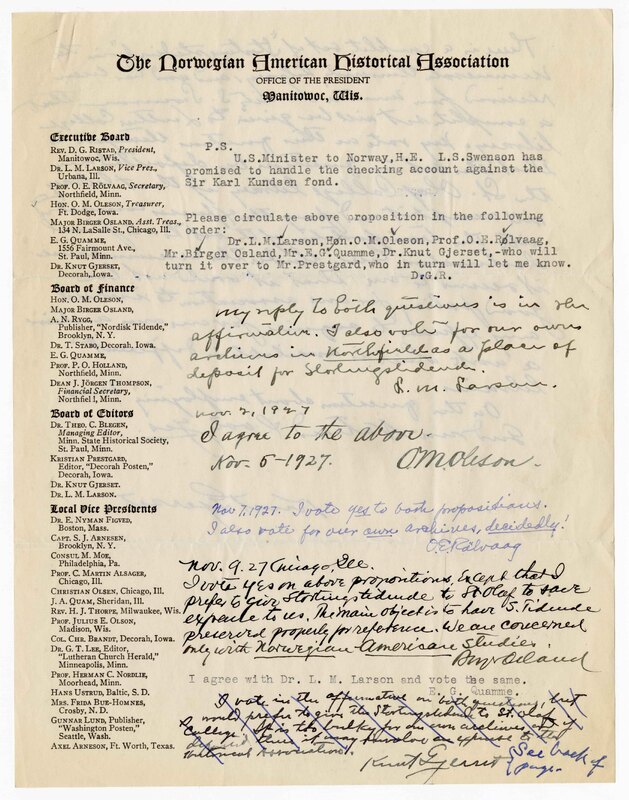 The Norwegian American Historical Association
OFFICE OF THE PRESIDENT
Manitowoc, Wis.
Executive Board
REV. D. G. RISTAD, President,
Manitowoc, Wis.
DR. L. M. LARSON, Vice Pres.,
Urbana, Ill.
PROF. O. E. RÖLVAAG, Secretary,
Northfield, Minn.
HON. O. M. OLESON, Treasurer,
Ft. Dodge, Iowa.
MAJOR BIRGER OSLAND, Asst. Treas.,
134 N. LaSalle St., Chicago, Ill.
E. G. QUAMME,
1556 Fairmount Ave.,
St. Paul, Minn.
DR. KNUT GJERSET,
Decorah, Iowa.
Board of Finance
HON. O. M. OLESON,
MAJOR BIRGER OSLAND,
A. N. RYGG,
Publisher, "Nordisk Tidende,"
Brooklyn, N. Y.
DR. T. STABO, Decorah, Iowa.
E. G. QUAMME,
PROF. P. O. HOLLAND,
Northfield, Minn.
DEAN J. JÖRGEN THOMPSON,
Financial Secretary,
Northfiel l, Minn.
Board of Editors
DR. THEO. C. BLEGEN,
Managing Editor,
Minn. State Historical Society,
St. Paul, Minn.
KRISTIAN PRESTGARD,
Editor, "Decorah Posten,"
Decorah, Iowa.
DR. KNUT GJERSET.
DR. L. M. LARSON.
Local Vice Presidents
DR. E. NYMAN FIGVED,
Boston, Mass.
CAPT. S. J. ARNESEN,
Brooklyn, N. Y.
CONSUL M. MOE,
Philadelphia, Pa.
PROF. C. MARTIN ALSAGER,
Chicago, Ill.
CHRISTIAN OLSEN, Chicago, Ill.
J. A. QUAM, Sheridan, Ill.
REV. H. J. THORPE, Milwaukee, Wis.
PROF. JULIUS E. OLSON,
Madison, Wis.
COL. CHR. BRANDT, Decorah, Iowa.
DR. G. T. LEE, Editor,
"Lutheran Church Herald,"
Minneapolis, Minn.
PROF. HERMAN C. NORDLIE,
Moorhead, Minn.
HANS USTRUD, Baltic, S. D.
MRS. FRIDA BUE-HOMNES,
Crosby, N. D.
GUNNAR LUND, Publisher,
"Washington Posten,"
Seattle, Wash.
AXEL ARNESON, Ft. Worth, Texas.
P.S.
U.S.Minister to Norway,H.E. L.S.Swenson has
promised to handle the checking account against the
Sir Karl Kundsen fond.
Please circulate above proposition in the following
order:
Dr.L.M.Larson,Hon.O.M.Oleson,Prof.O.E.Rölvaag,
Mr.Birger Osland,Mr.E.G.Quamme,Dr.Knut Gjerset,-who will
turn it over to Mr.Prestgard,who in turn will let me know.
D.G.R.
My reply to both questions is in the
affirmative. I also vote for our own
archives in Northfield as a place of
deposit for Stortingstidend.
L. M. Larson.
Nov. 2, 1927
I agree to the above.
Nov. 5-1927. O M Oleson.
Nov 7, 1927. I vote yes to both propositions.
I also vote for our own archives, decidedly!
O.E. Rölvaag
Nov. 9. 27 Chicago, Ill.
I vote yes on above propositions, except that I
prefer to give Stortingstidende to St Olaf to save
expense to us. The main object is to have S. Tidende
preserved properly for reference. We are concerned
only with Norwegian American Studies.
Birger Osland
I agree with Dr. L. M. Larson and vote the same.
E. G. Quamme.
I vote in the affirmative on both questions, but
I would prefer to give the Stortingstidend to St. Olaf
College. It is too bulky for our own archives and
it may involve an expense to the
Historical Association.
Knut Gjerset
(See back of
page.